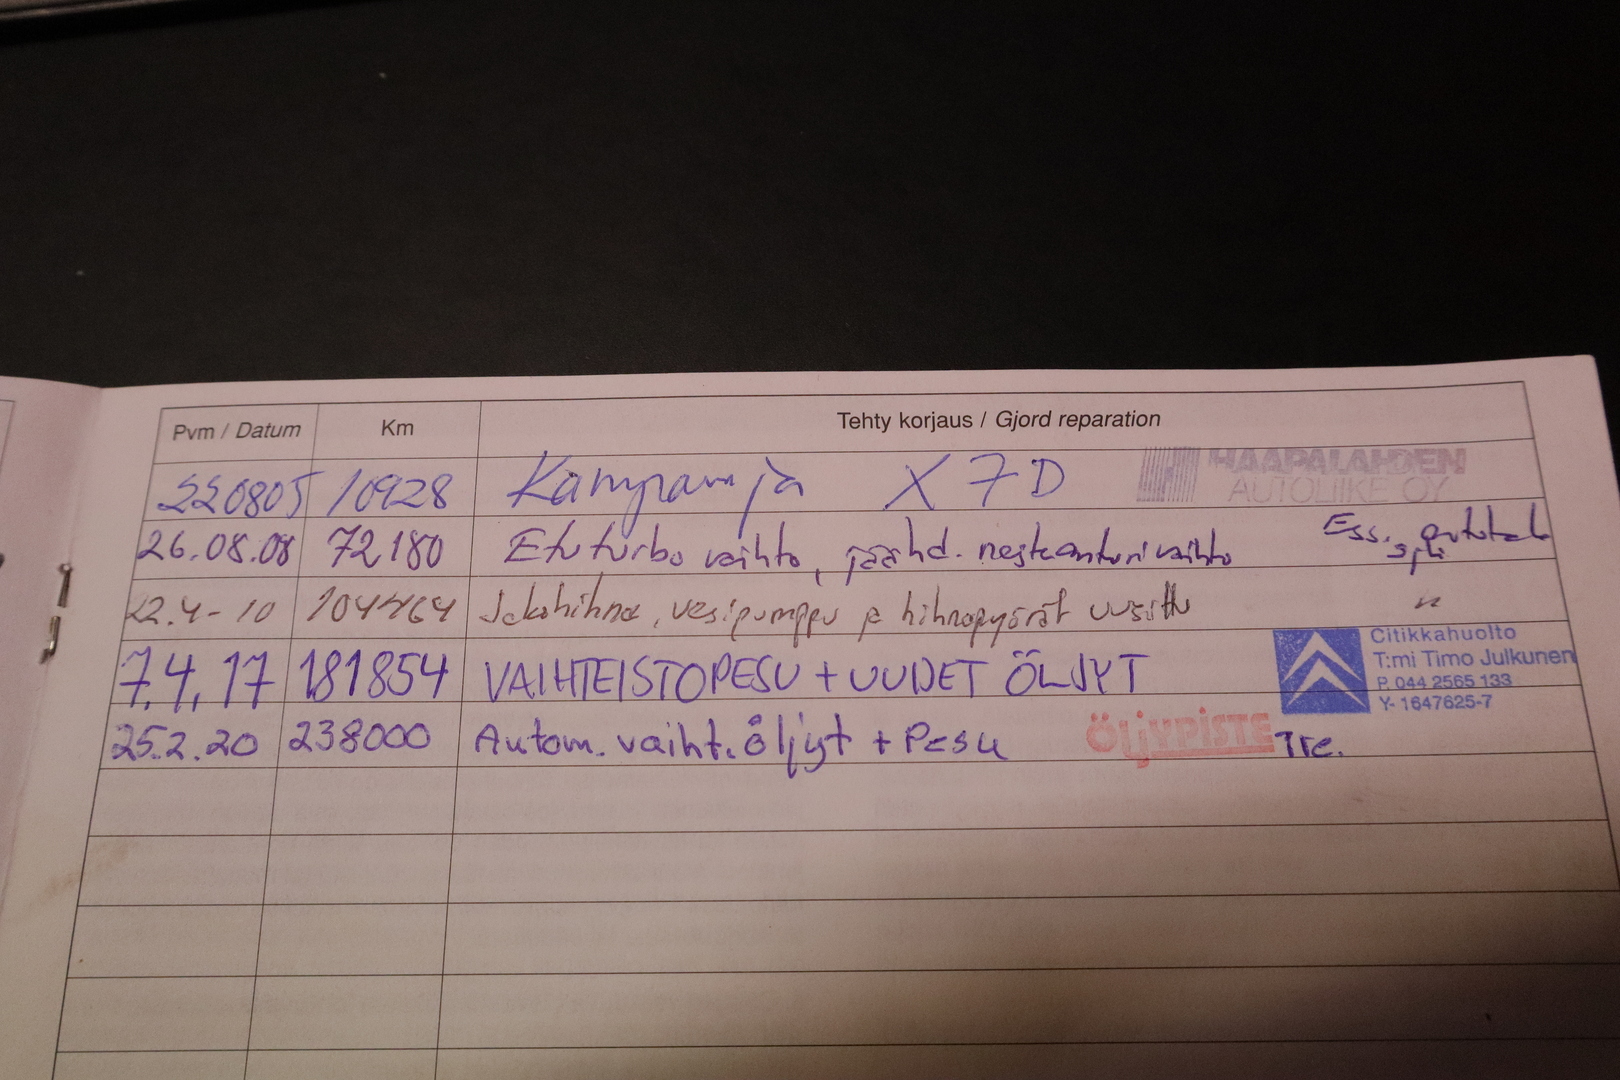 Pvm / Datum Km Tehty korjaus / Gjord reparation
220805 10928 Kampanja X7D HAAPALAHDEN
AUTOLIIKE OY
26.08.08 72180 Etuturbo vaihto, jäähd. nesteanturi vaihto Ess.
22.4-10 104464 Jakohihna, vesipumppu ja hihnapyörät uusittu -"-
7.4.17 181854 VAIHTEISTOPESU + UUDET ÖLJYT Citikkahuolto
T:mi Timo Julkunen
P. 044 2565 133
Y- 1647625-7
25.2.20 238000 Autom. vaiht. öljyt + Pesu ÖLJYPISTE Tre.